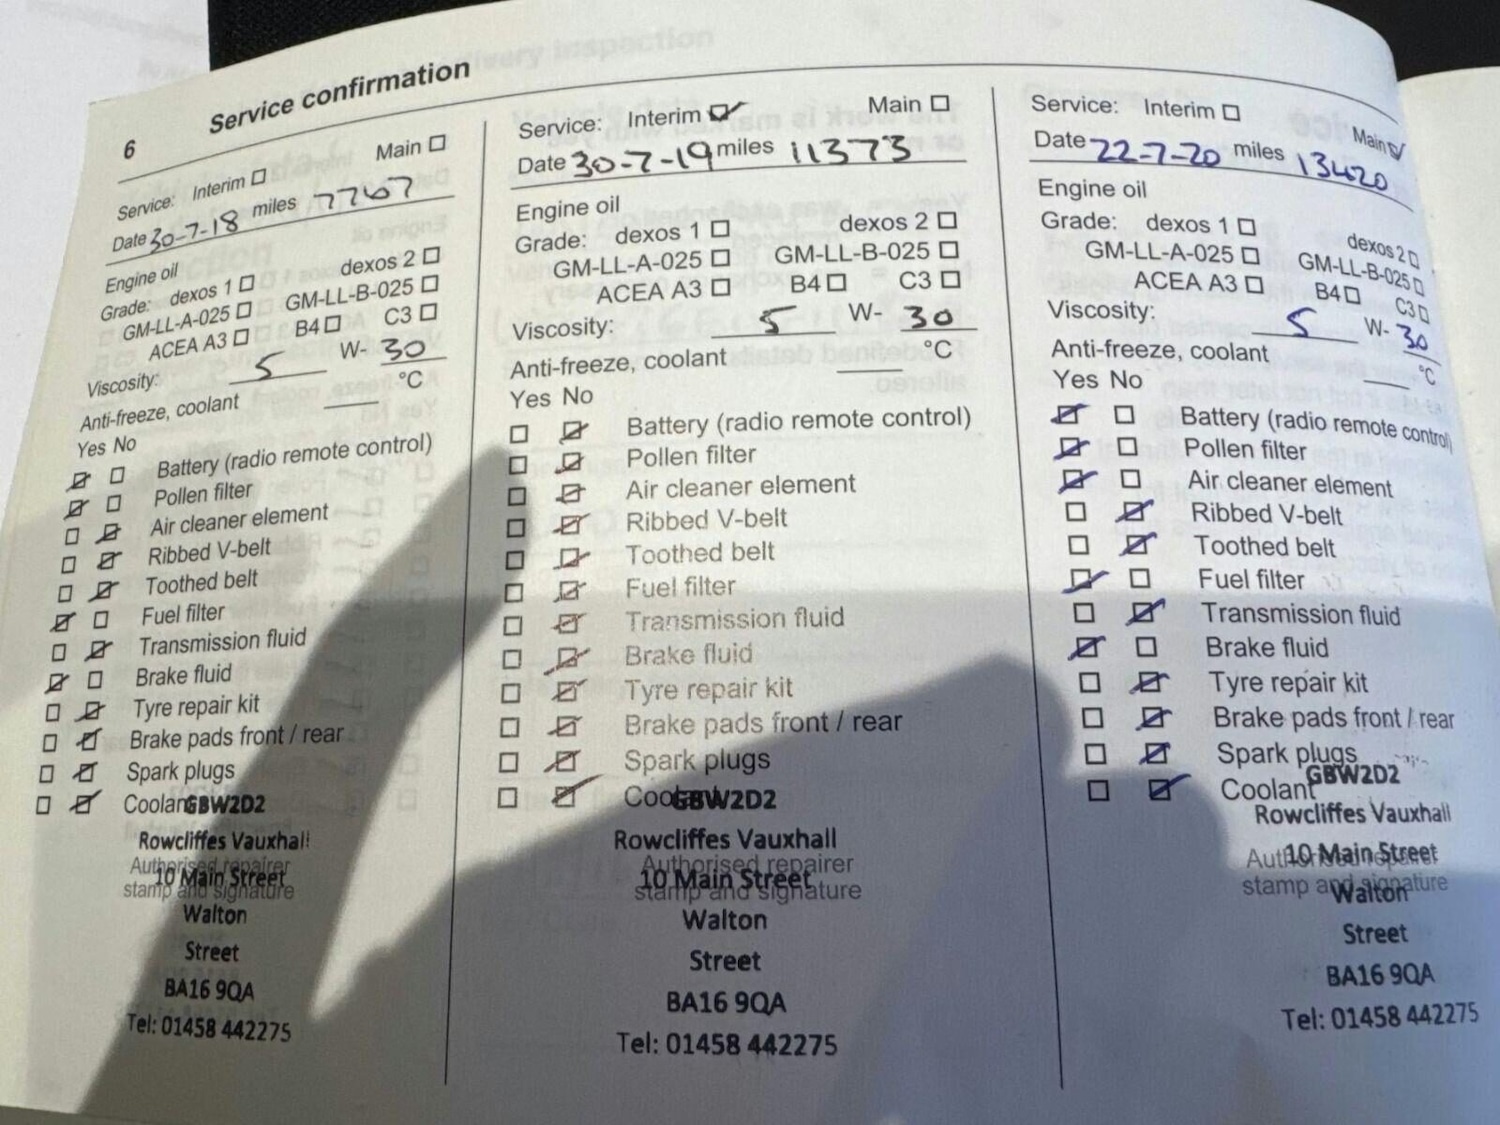 6
Service confirmation
Service: Interim ☐ Main ☐
Date 30-7-18 miles 7767
Engine oil
Grade: dexos 1 ☐ dexos 2 ☐
GM-LL-A-025 ☐ GM-LL-B-025 ☐
ACEA A3 ☐ B4 ☐ C3 ☐
Viscosity: 5 W- 30
Anti-freeze, coolant ____ °C
Yes No
☑ ☐ Battery (radio remote control)
☑ ☐ Pollen filter
☐ ☑ Air cleaner element
☐ ☑ Ribbed V-belt
☐ ☑ Toothed belt
☑ ☐ Fuel filter
☐ ☑ Transmission fluid
☑ ☐ Brake fluid
☐ ☑ Tyre repair kit
☐ ☑ Brake pads front / rear
☐ ☑ Spark plugs
☐ ☑ Coolant GBW2D2
Rowcliffes Vauxhall
Authorised repairer
10 Main Street
stamp and signature
Walton
Street
BA16 9QA
Tel: 01458 442275
Service: Interim ☑ Main ☐
Date 30-7-19 miles 11373
Engine oil
Grade: dexos 1 ☐ dexos 2 ☐
GM-LL-A-025 ☐ GM-LL-B-025 ☐
ACEA A3 ☐ B4 ☐ C3 ☐
Viscosity: 5 W- 30
Anti-freeze, coolant ____ °C
Yes No
☐ ☑ Battery (radio remote control)
☐ ☑ Pollen filter
☐ ☑ Air cleaner element
☐ ☑ Ribbed V-belt
☐ ☑ Toothed belt
☐ ☑ Fuel filter
☐ ☑ Transmission fluid
☐ ☑ Brake fluid
☐ ☑ Tyre repair kit
☐ ☑ Brake pads front / rear
☐ ☑ Spark plugs
☐ ☑ Coolant GBW2D2
Rowcliffes Vauxhall
Authorised repairer
10 Main Street
stamp and signature
Walton
Street
BA16 9QA
Tel: 01458 442275
Service: Interim ☐ Main ☑
Date 22-7-20 miles 13420
Engine oil
Grade: dexos 1 ☐ dexos 2 ☐
GM-LL-A-025 ☐ GM-LL-B-025 ☐
ACEA A3 ☐ B4 ☐ C3 ☐
Viscosity: 5 W- 30
Anti-freeze, coolant ____ °C
Yes No
☑ ☐ Battery (radio remote control)
☑ ☐ Pollen filter
☑ ☐ Air cleaner element
☐ ☑ Ribbed V-belt
☐ ☑ Toothed belt
☑ ☐ Fuel filter
☐ ☑ Transmission fluid
☑ ☐ Brake fluid
☐ ☑ Tyre repair kit
☐ ☑ Brake pads front / rear
☐ ☑ Spark plugs
GBW2D2
☐ ☑ Coolant
Rowcliffes Vauxhall
Authorised repairer
10 Main Street
stamp and signature
Walton
Street
BA16 9QA
Tel: 01458 442275